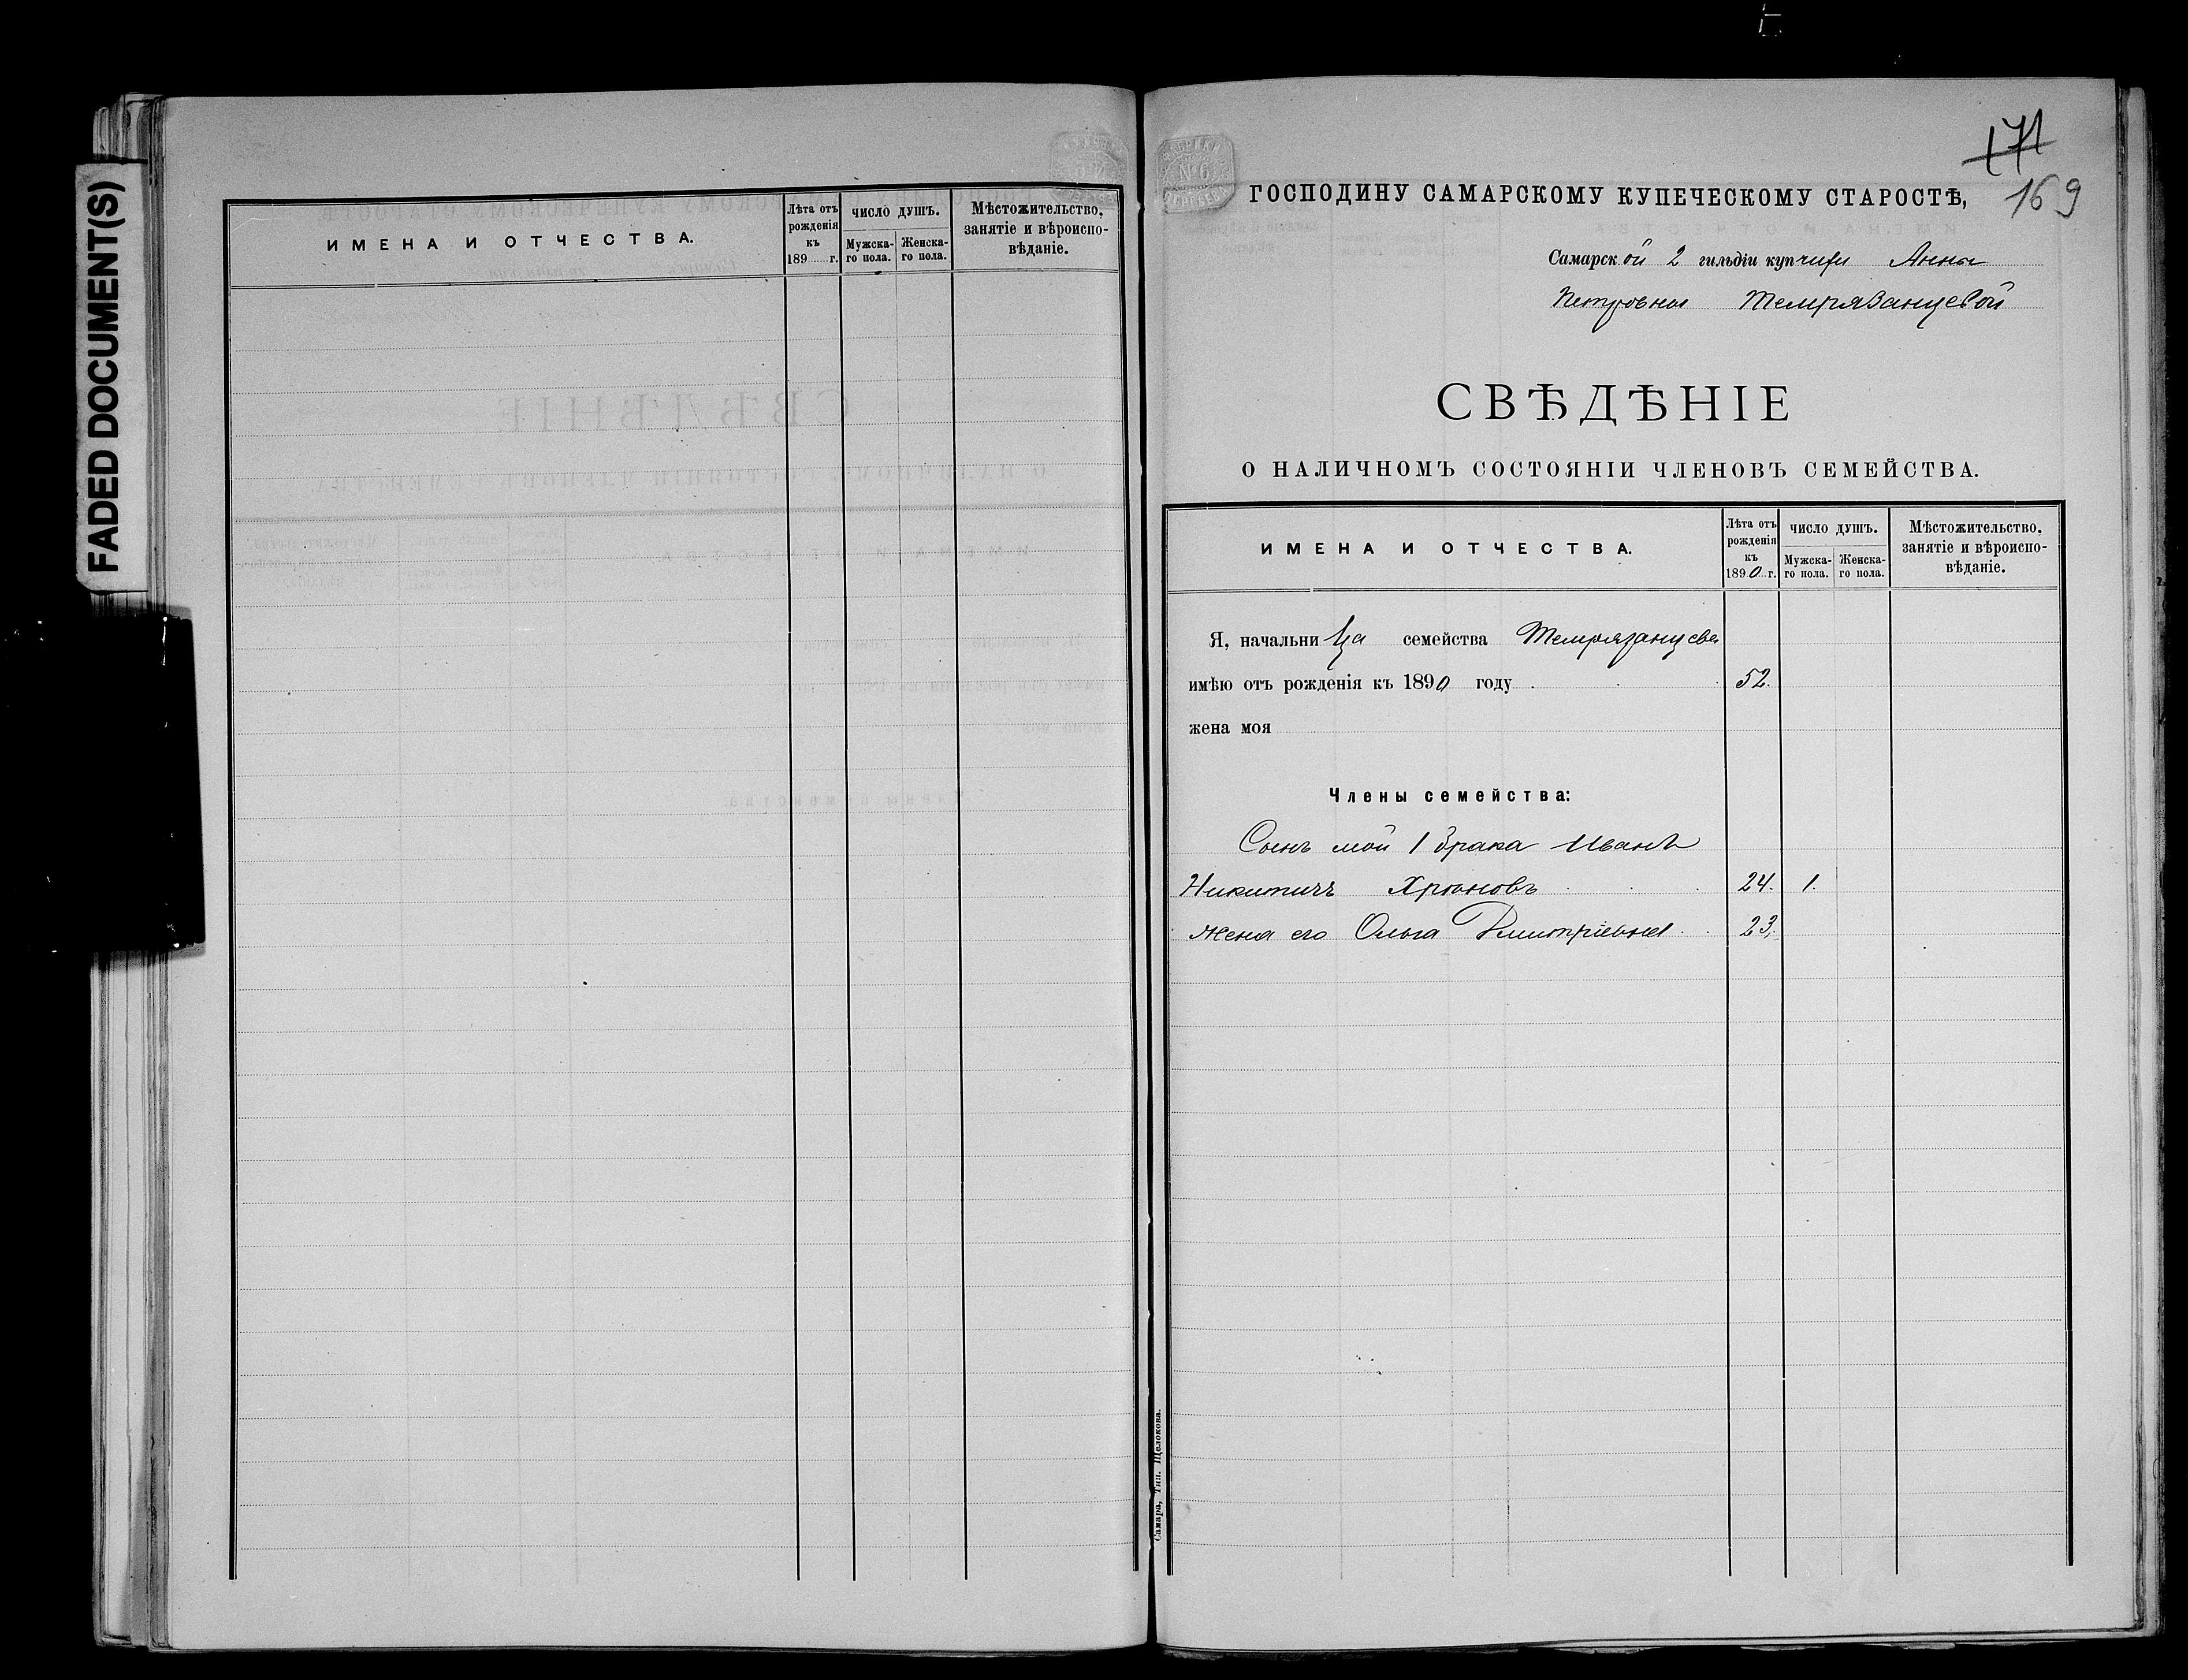 FADED DOCUMENT(S)
ИМЕНА И ОТЧЕСТВА.
Лѣта отъ рожденія къ 189 г.
ЧИСЛО ДУШЪ.
Мужска-го пола.
Женска-го пола.
Мѣстожительство, занятіе и вѣроиспо-вѣданіе.
171
169
ГОСПОДИНУ САМАРСКОМУ КУПЕЧЕСКОМУ СТАРОСТѢ,
Самарской 2 гильдіи купчихи Анны
Петровны Темрязанцевой
СВѢДѢНІЕ
О НАЛИЧНОМЪ СОСТОЯНІИ ЧЛЕНОВЪ СЕМЕЙСТВА.
ИМЕНА И ОТЧЕСТВА.
Лѣта отъ рожденія къ 1890 г.
ЧИСЛО ДУШЪ.
Мужска-го пола.
Женска-го пола.
Мѣстожительство, занятіе и вѣроиспо-вѣданіе.
Я, начальница семейства Темрязанцева
имѣю отъ рожденія къ 1890 году 52.
жена моя
Члены семейства:
Сынъ мой 1 брака Иванъ
Никитичъ Хрѣновъ 24. 1.
Жена его Ольга Дмитріевна 23.
Самара, Тип. Щелокова.
№6